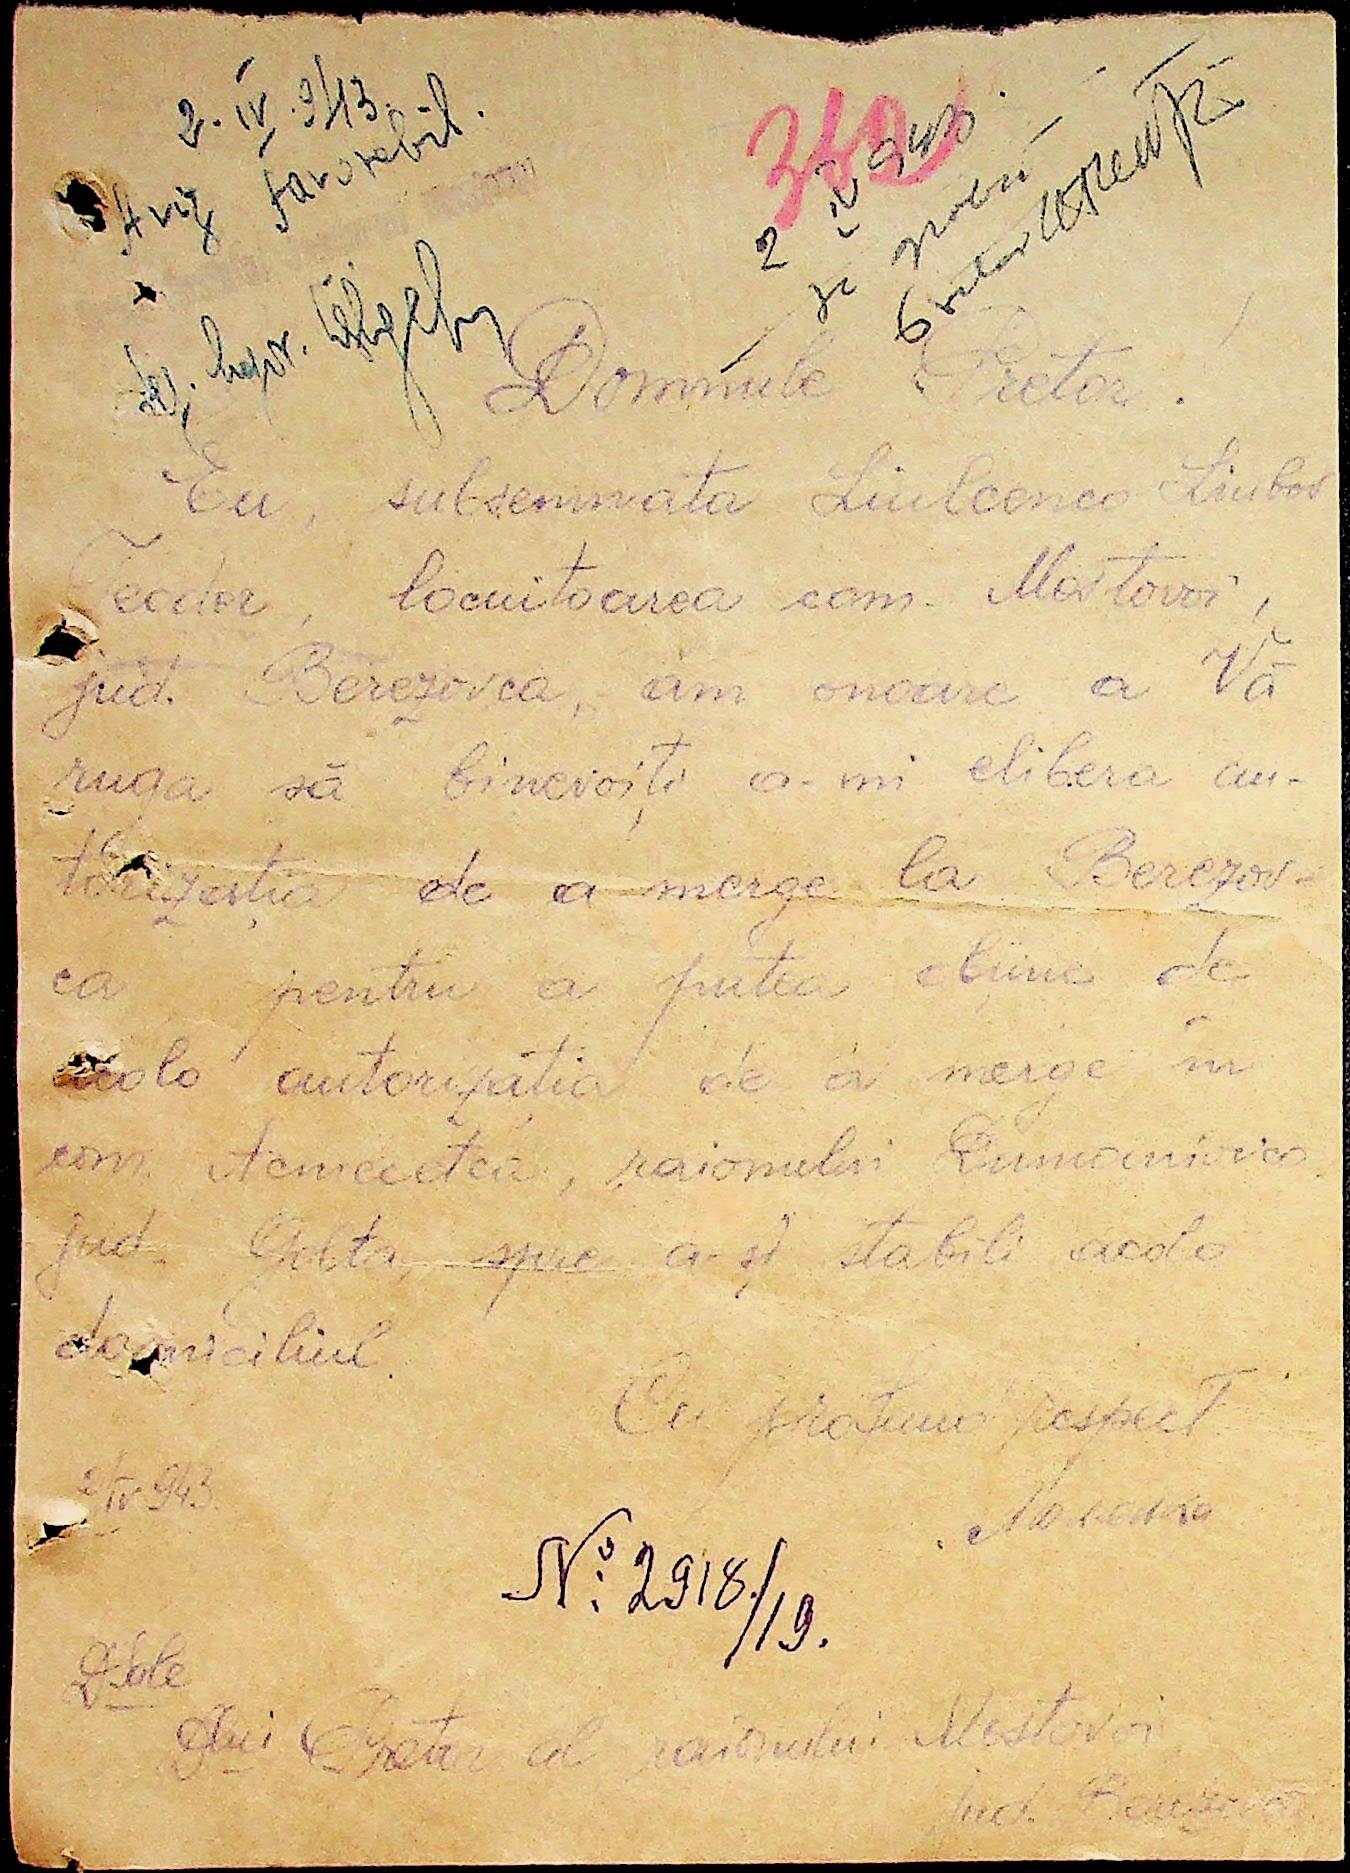 2. IV. 943.
Aviz favorabil.
342
2 IV 943.
Domnule Pretor!
Eu, subsemnata Liubcenco Liubov
Feodor, locuitoarea com. Mostovoi,
jud. Berezovca, am onoare a Vă
ruga să binevoiți a-mi elibera au-
torizația de a merge la Berezov-
ca pentru a putea obține de
acolo autorizația de a merge în
com. Acmecetca, raionului Dumaniovca
jud. Golta, spre a-și stabili acolo
domiciliul.
Cu profund respect
2/IV 943.
No: 2918/19.
D-sale
D-lui Pretor al raionului Mostovoi
jud. Berezovca